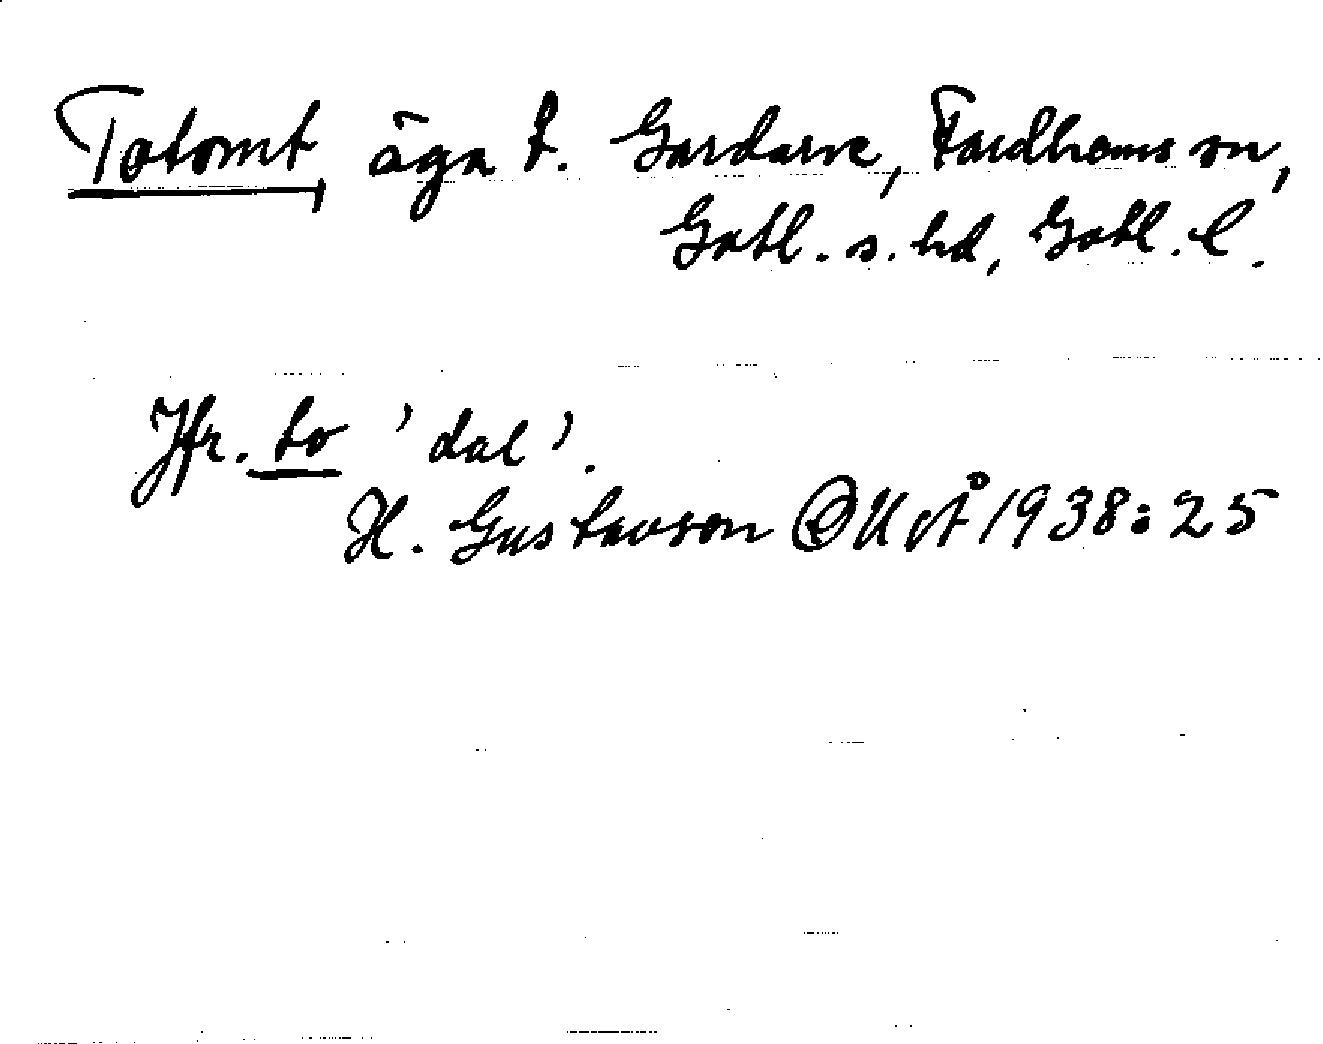 Totomt, äga t. Gardarve, Fardhems sn,
Gotl. s. hd, Gotl. l.
Jfr. to 'dal'.
H. Gustavson OUÅ 1938:25